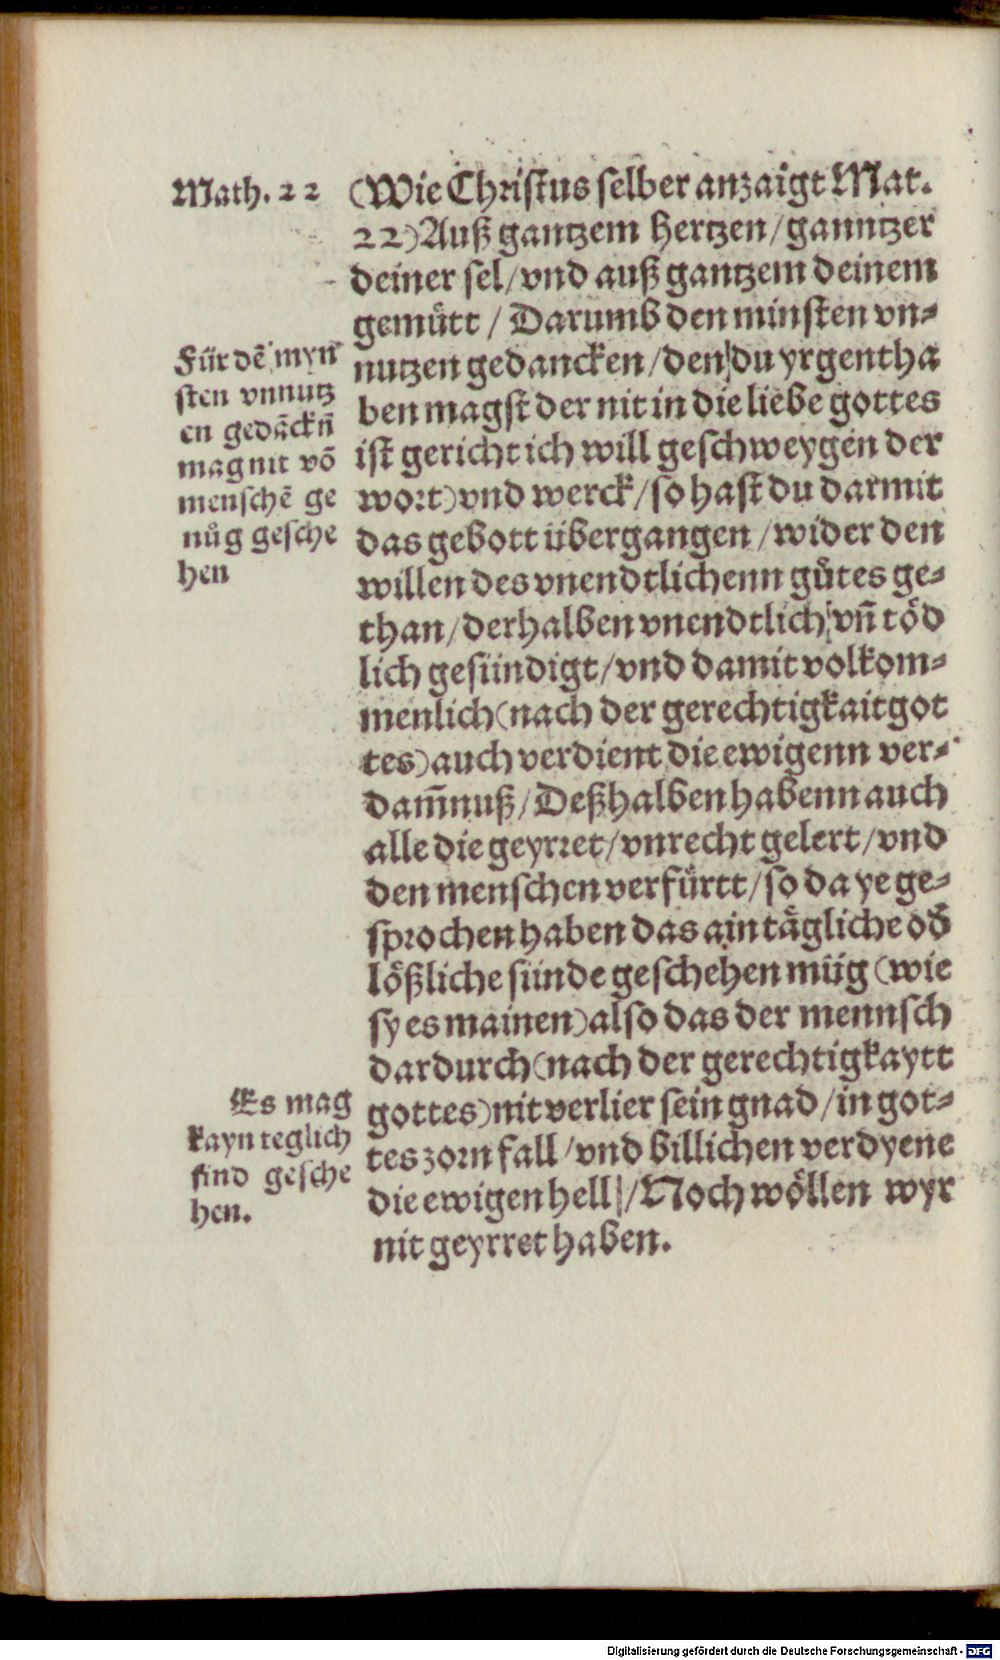 Math. 22
(Wie Christus selber anzaigt Mat.
22) Auß gantzem hertzen / ganntzer
deiner sel / vnd auß gantzem deinem
gemuͤtt / Darumb den minsten vn⸗
nutzen gedancken / den du yrgent ha
ben magst der nit in die liebe gottes
ist gericht ich will geschweygen der
wort) vnd werck / so hast du darmit
das gebott übergangen / wider den
willen des vnendtlichenn guͦtes ge⸗
than / derhalben vnendtlich vñ toͤd
lich gesündigt / vnd damit volkom⸗
menlich (nach der gerechtigkait got
tes) auch verdient die ewigenn ver⸗
dam̄nuß / Deßhalben habenn auch
alle die geyrret / vnrecht gelert / vnd
den menschen verfuͤrtt / so da ye ge⸗
sprochen haben das ain taͤgliche od̄
loͤßliche sünde geschehen müg (wie
sy es mainen) also das der mennsch
dardurch (nach der gerechtigkaytt
gottes) nit verlier sein gnad / in got⸗
tes zorn fall / vnd billichen verdyene
die ewigen hell / Noch woͤllen wyr
nit geyrret haben.
Für dē myn
sten vnnutz
en gedāckñ
mag nit vō
menschē ge
nuͦg gesche
hen
Es mag
kayn teglich
sind gesche
hen.
Digitalisierung gefördert durch die Deutsche Forschungsgemeinschaft - DFG